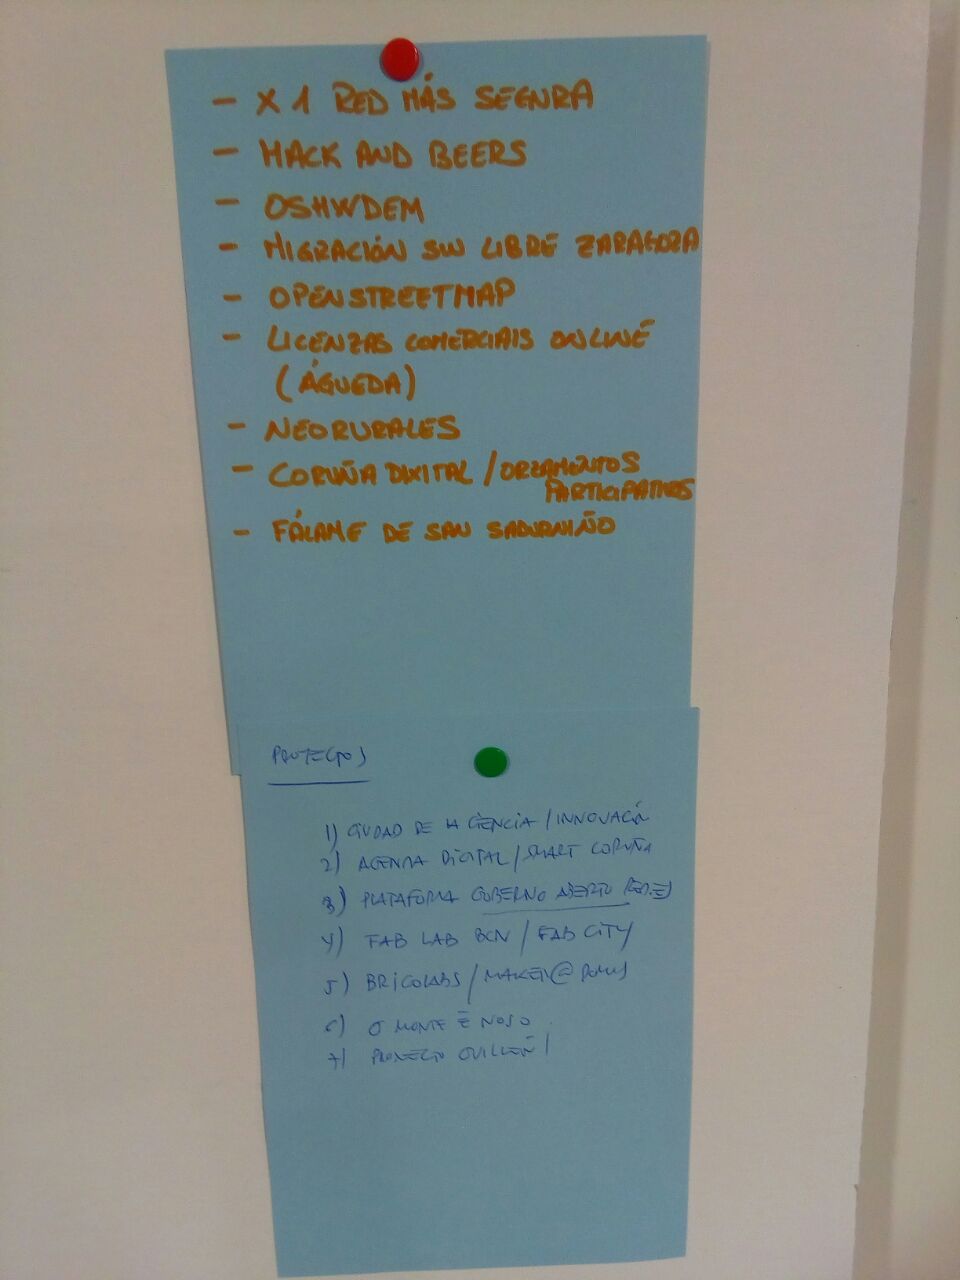 - X 1 RED MÁS SEGURA
- HACK AND BEERS
- OSHWDEM
- MIGRACIÓN SW LIBRE ZARAGOZA
- OPENSTREETMAP
- LICENZAS COMERCIAIS ONLINE
(ÁGUEDA)
- NEORURALES
- CORUÑA DIXITAL / ORZAMENTOS
PARTICIPATIVOS
- FÁLAME DE SAN SADURNIÑO
PROYECTOS
1) CIUDAD DE LA CIENCIA / INNOVACIÓN
2) AGENDA DIGITAL / SMART CORUÑA
3) PLATAFORMA GOBERNO ABERTO
4) FAB LAB BCN / FAB CITY
5) BRICOLABS / MAKER@DOMUS
6) O MONTE É NOSO
7) PROXECTO